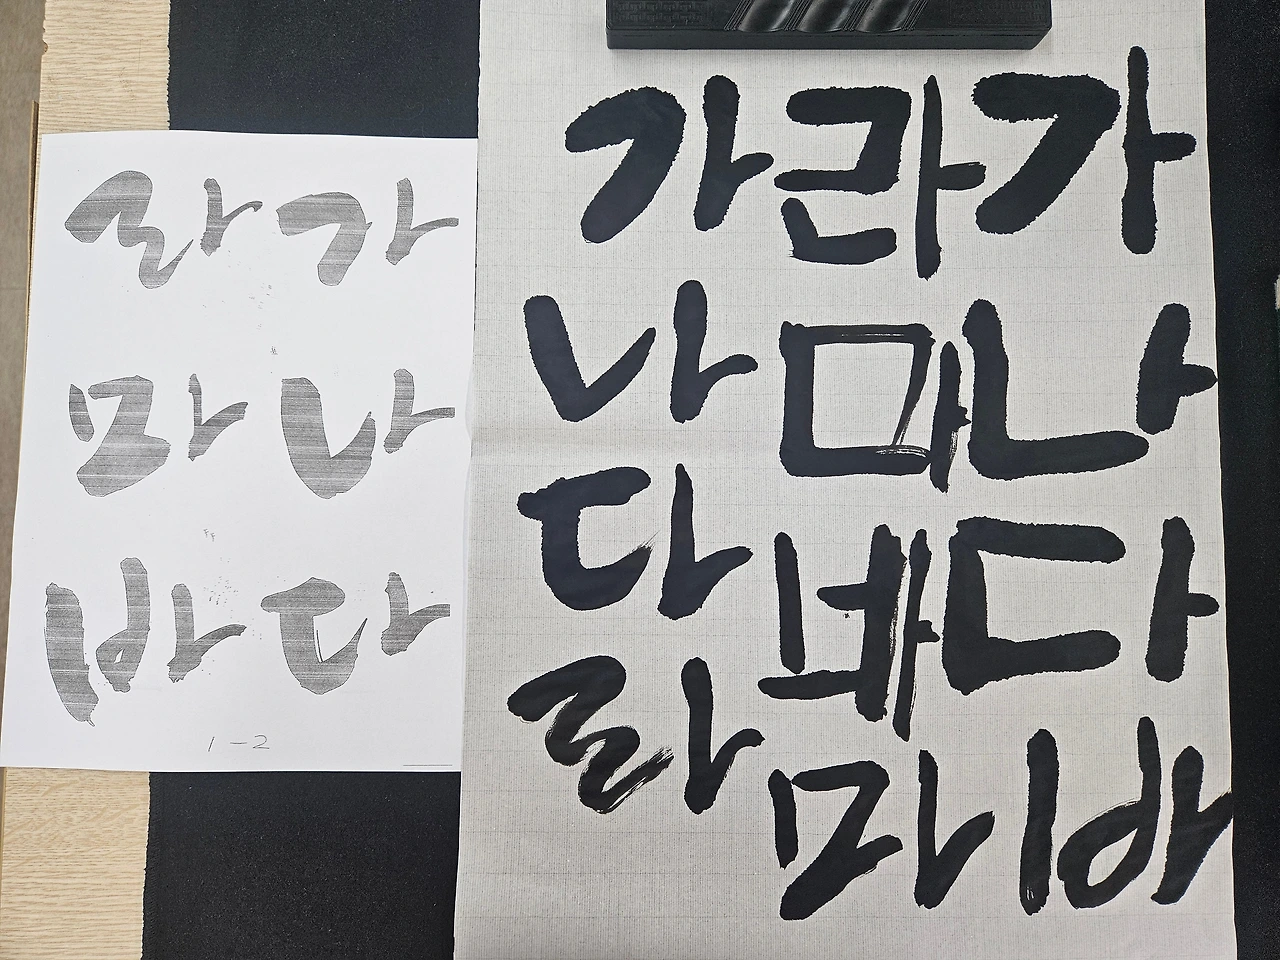 라 가
마 나
바 다
1-2
가 라 가
나 마 나
다 바 다
라 마 바